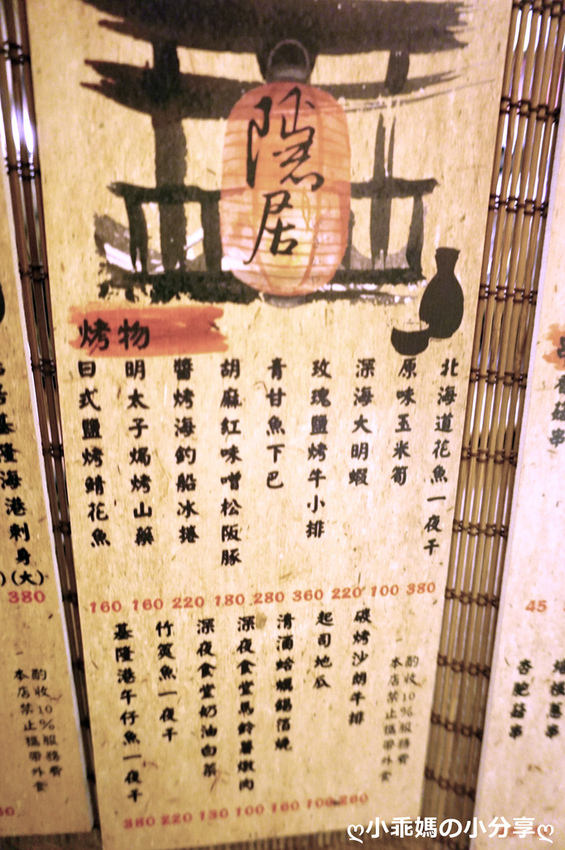 隱居
烤物
北海道花魚一夜干 380
原味玉米筍 100
深海大明蝦 220
玫瑰鹽烤牛小排 360
青甘魚下巴 280
胡麻紅味噌松阪豚 180
醬烤海釣船冰捲 220
明太子焗烤山藥 160
日式鹽烤鯖花魚 160
酌收10%服務費
本店禁止攜帶外食
碳烤沙朗牛排 260
起司地瓜 100
清酒蛤蠣錫箔燒 160
深夜食堂馬鈴薯燉肉 100
深夜食堂奶油白菜 130
竹筴魚一夜干 220
基隆港午仔魚一夜干 380
基隆海港刺身(大)
380
酌收10%服務費
本店禁止攜帶外食
菇串
45
杏鮑菇串
蔥串
ღ小乖媽の小分享ღ